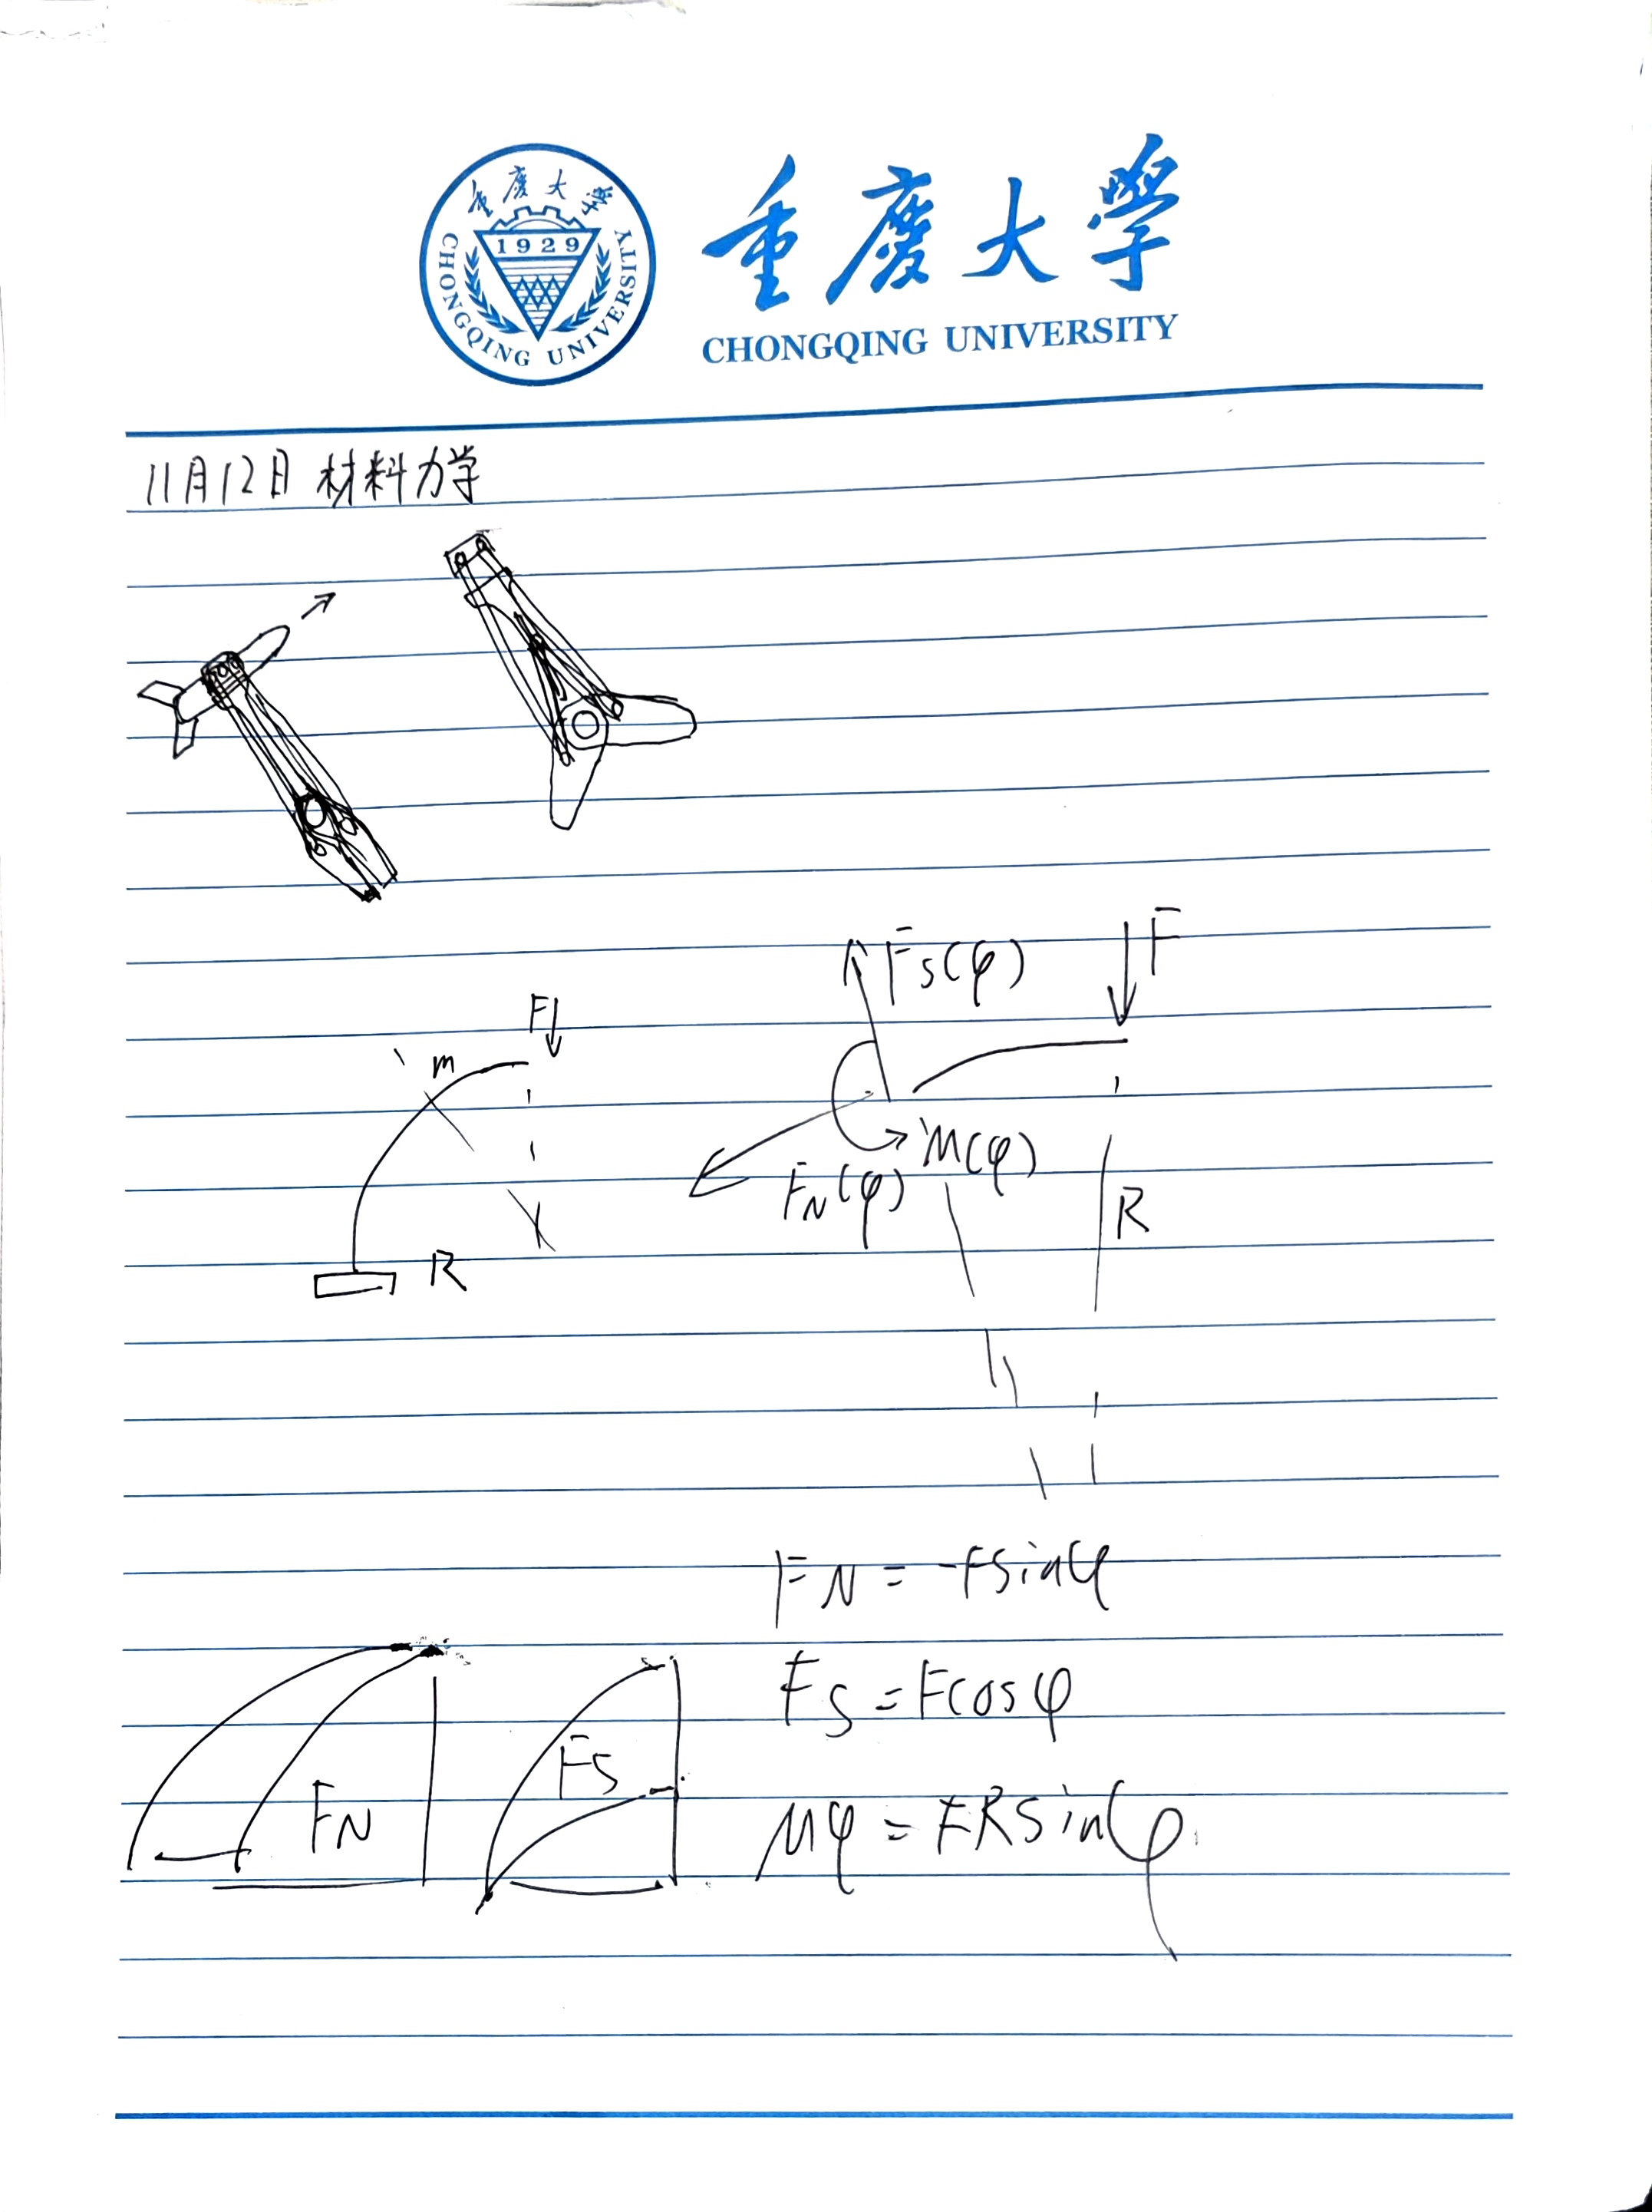 重慶大學
1929
CHONGQING UNIVERSITY
重慶大學
CHONGQING UNIVERSITY
11月12日 材料力学
F
m
R
Fs(φ)
F
M(φ)
FN(φ)
R
FN = -Fsinφ
Fs = Fcosφ
Mφ = FRsinφ
FN
Fs